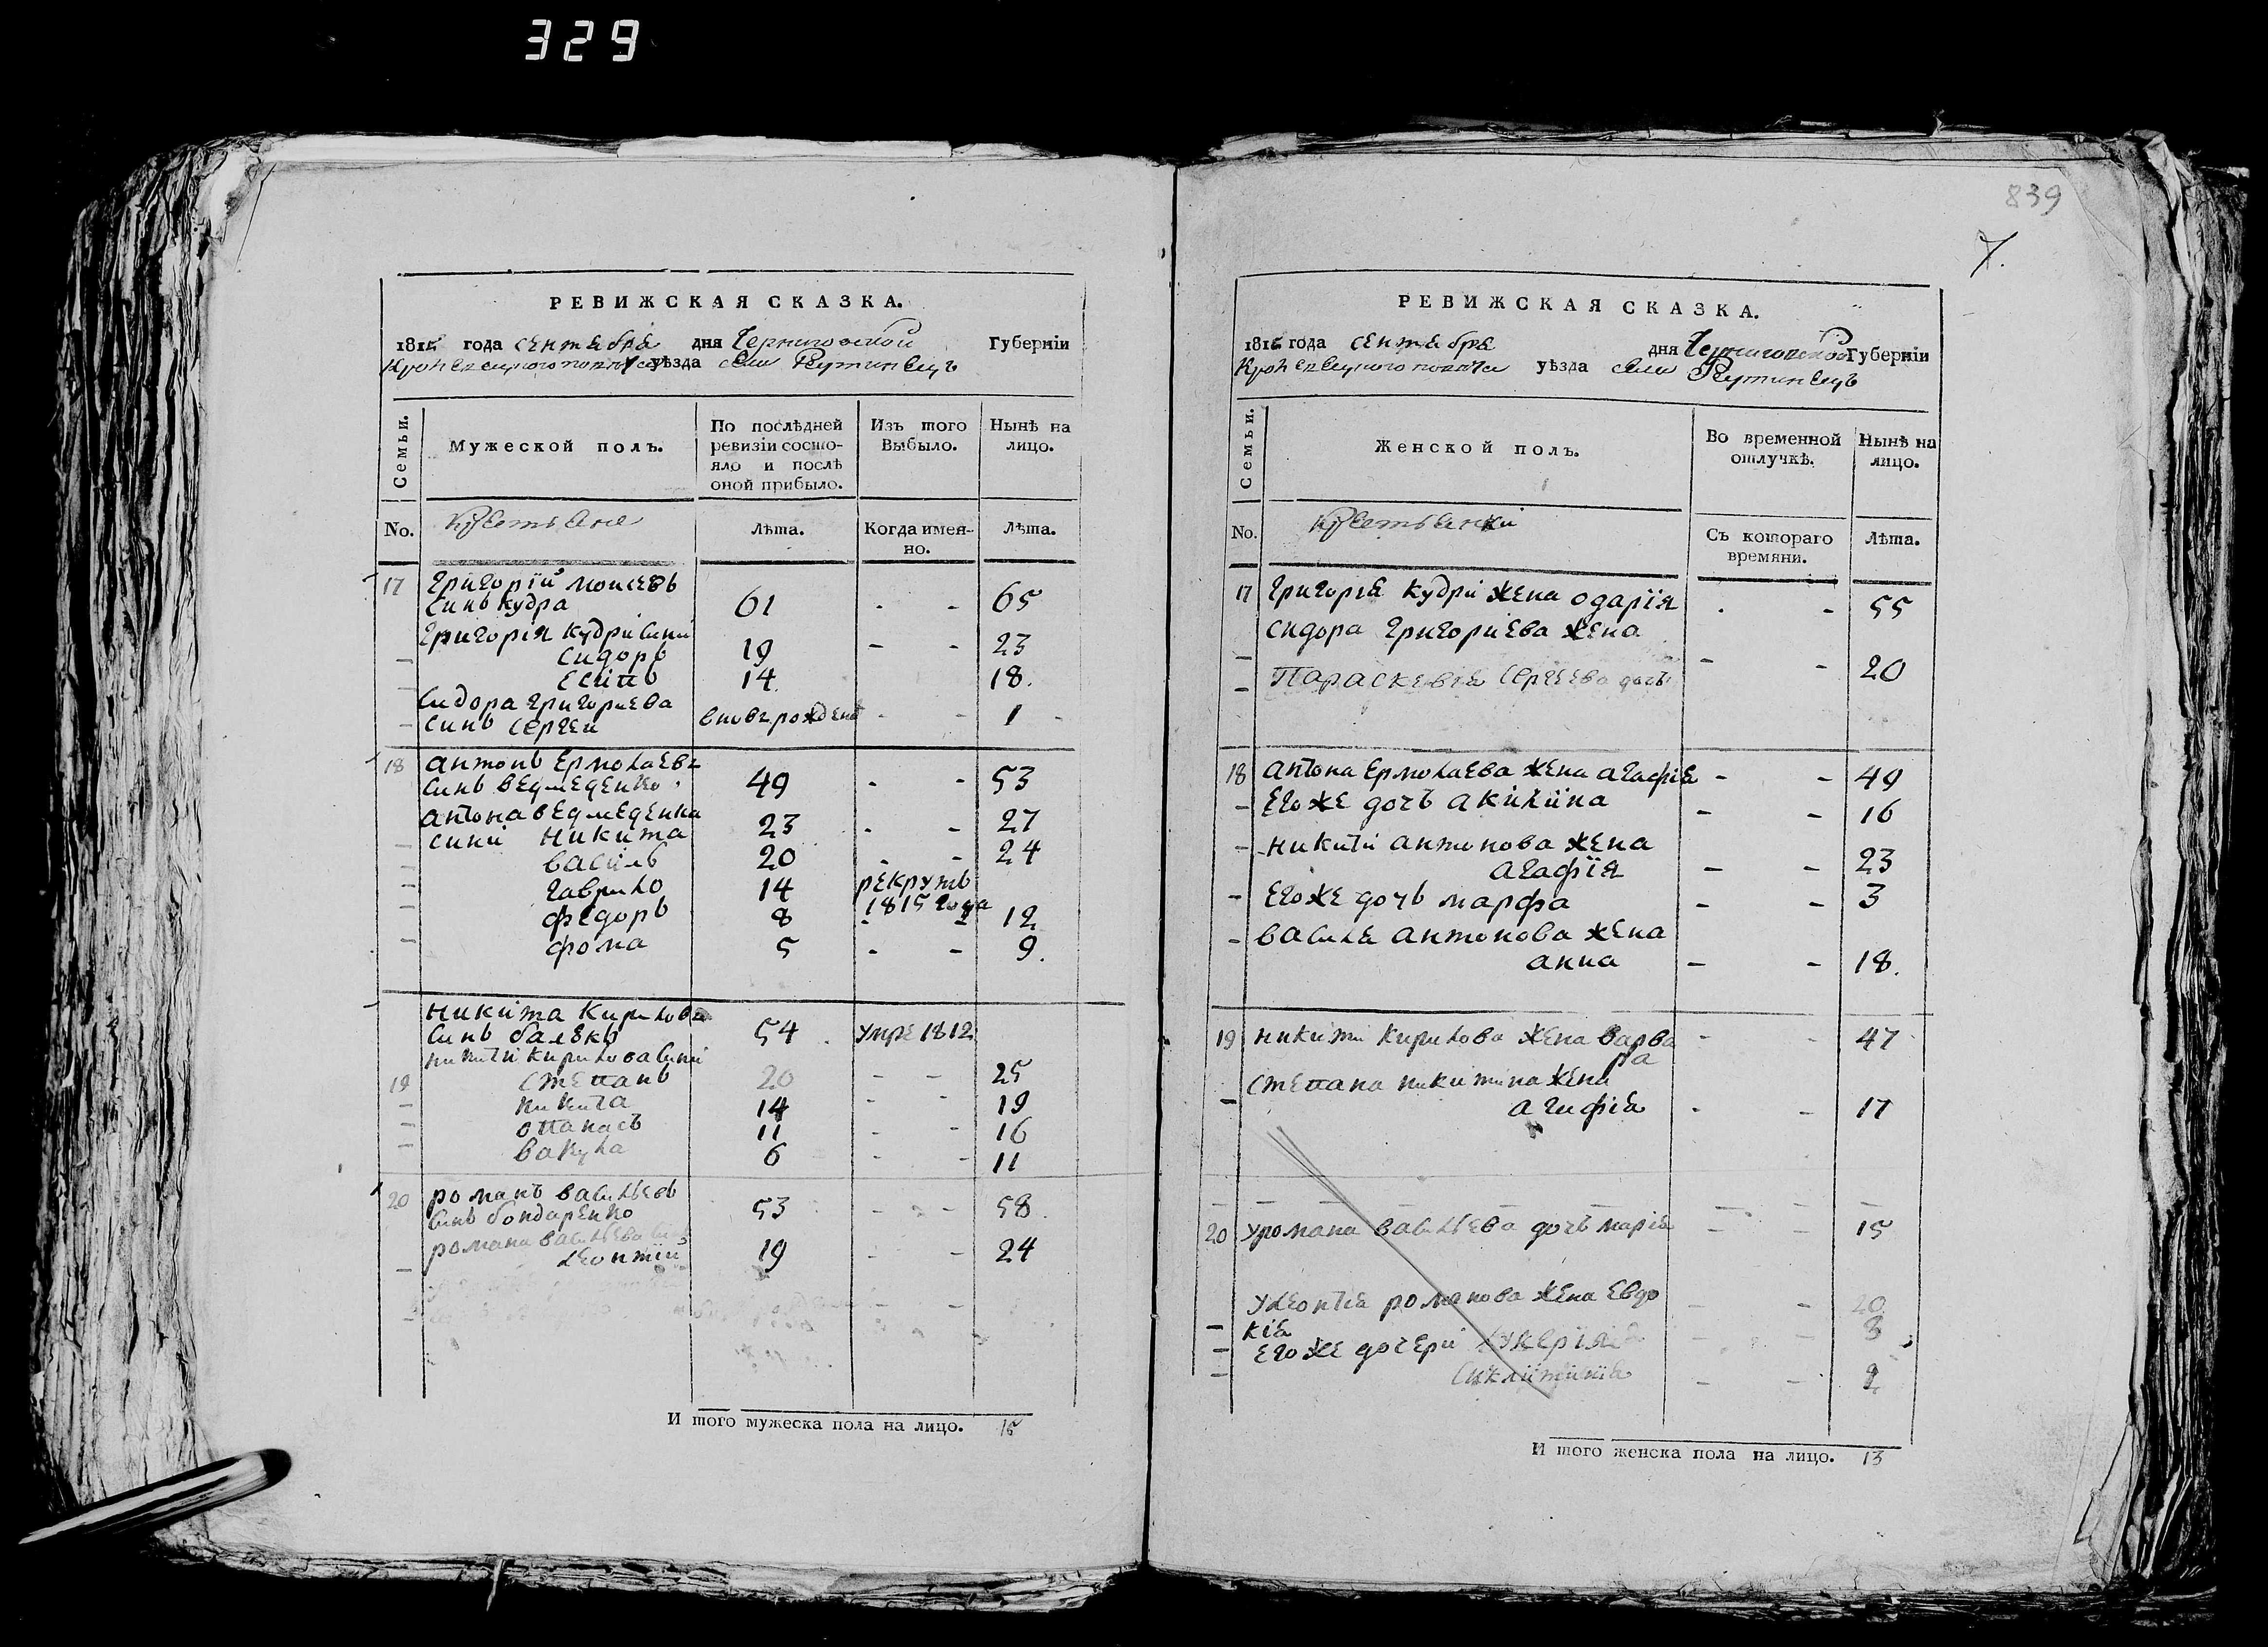 329
839
7.
РЕВИЖСКАЯ СКАЗКА.
181 года сентебре дня Черниговской Губерніи
Кролевецкого повѣта уѣзда села Реутинецъ
Семьи. Мужеской полъ. По послѣдней ревизіи состояло и послѣ оной прибыло. Изъ того Выбыло. Нынѣ на лицо.
No. Крестьяне Лѣта. Когда именно. Лѣта.
17 Григорій Моисеевъ
синъ Кудра 61 - - 65
Григорія Кудри сини
- Сидоръ 19 - - 23
- Есипъ 14 18.
Сидора Григориева
- синъ Сергеи вновь рожденъ - - 1 -
18 Антонъ Ермолаевъ
синъ Ведмеденко 49 - - 53
Антона Ведмеденка
- сини Никита 23 - - 27
- Василь 20 - - 24
- Гаврило 14 рекрутъ
- Федоръ 8 1815 года 12
- Фома 5 - - 9.
Никита Кирилова
синъ 54 умре 1812
Никити Кирилова сини
19 Степанъ 20 - - 25
- Никита 14 - - 19
- Опанасъ 11 - - 16
- Вакула 6 - - 11
20 Романъ Васильевъ
синъ Бондаренко 53 - - 58.
Романа Васильева синъ
- Леонтій 19 - - 24
И того мужеска пола на лицо. 15
РЕВИЖСКАЯ СКАЗКА.
181 года сентебре дня Черниговской Губерніи
Кролевецкого повѣта уѣзда села Реутинецъ
Семьи. Женской полъ. Во временной отлучкѣ. Нынѣ на лицо.
No. Крестьянки Съ котораго времяни. Лѣта.
17 Григорія Кудри жена Одарія - - 55
Сидора Григориева жена
- - - 20
- Параскевія Сергеева дочъ
18 Антона Ермолаева жена Агафія - - 49
- Его же дочъ Акилина - - 16
- Никити Антонова жена
Агафія - - 23
- Его же дочъ Марфа - - 3
- Василя Антонова жена
Анна - - 18.
19 Никити Кирилова жена Варва - - 47
ра
Степана Никитина жена
- Агафія - - 17
- - - - - - - -
20 У Романа Васильева дочъ Марія - - 15
У Леонтія Романова жена Евдо - - 20
- кія 3
- Его же дочери Лукерія - -
- - - 2
И того женска пола на лицо. 13